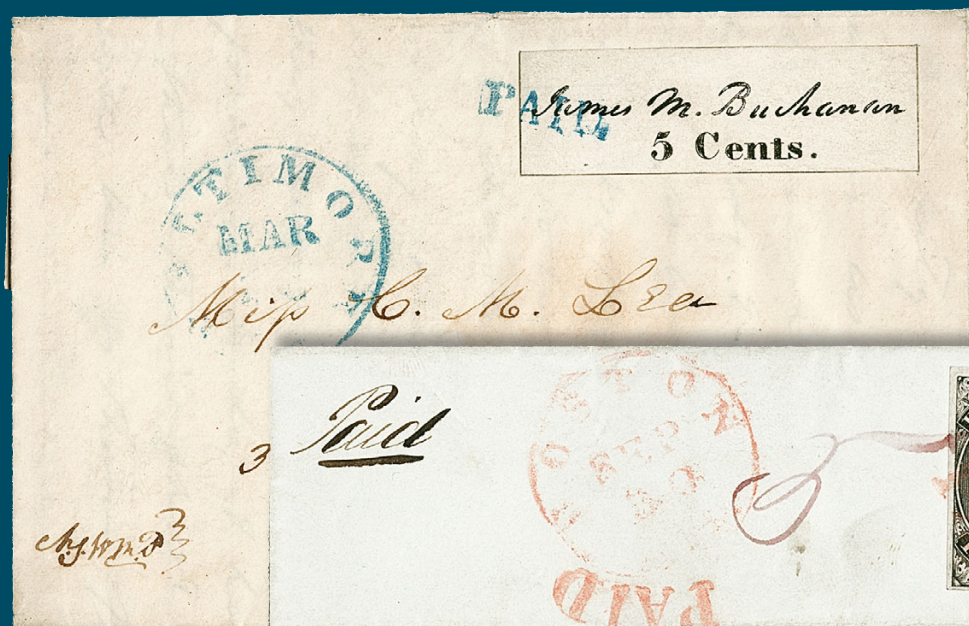 PAID
James M. Buchanan
5 Cents.
BALTIMORE
MAR
Miss C. M. Lee
Paid
BOSTON
SEP
3
PAID